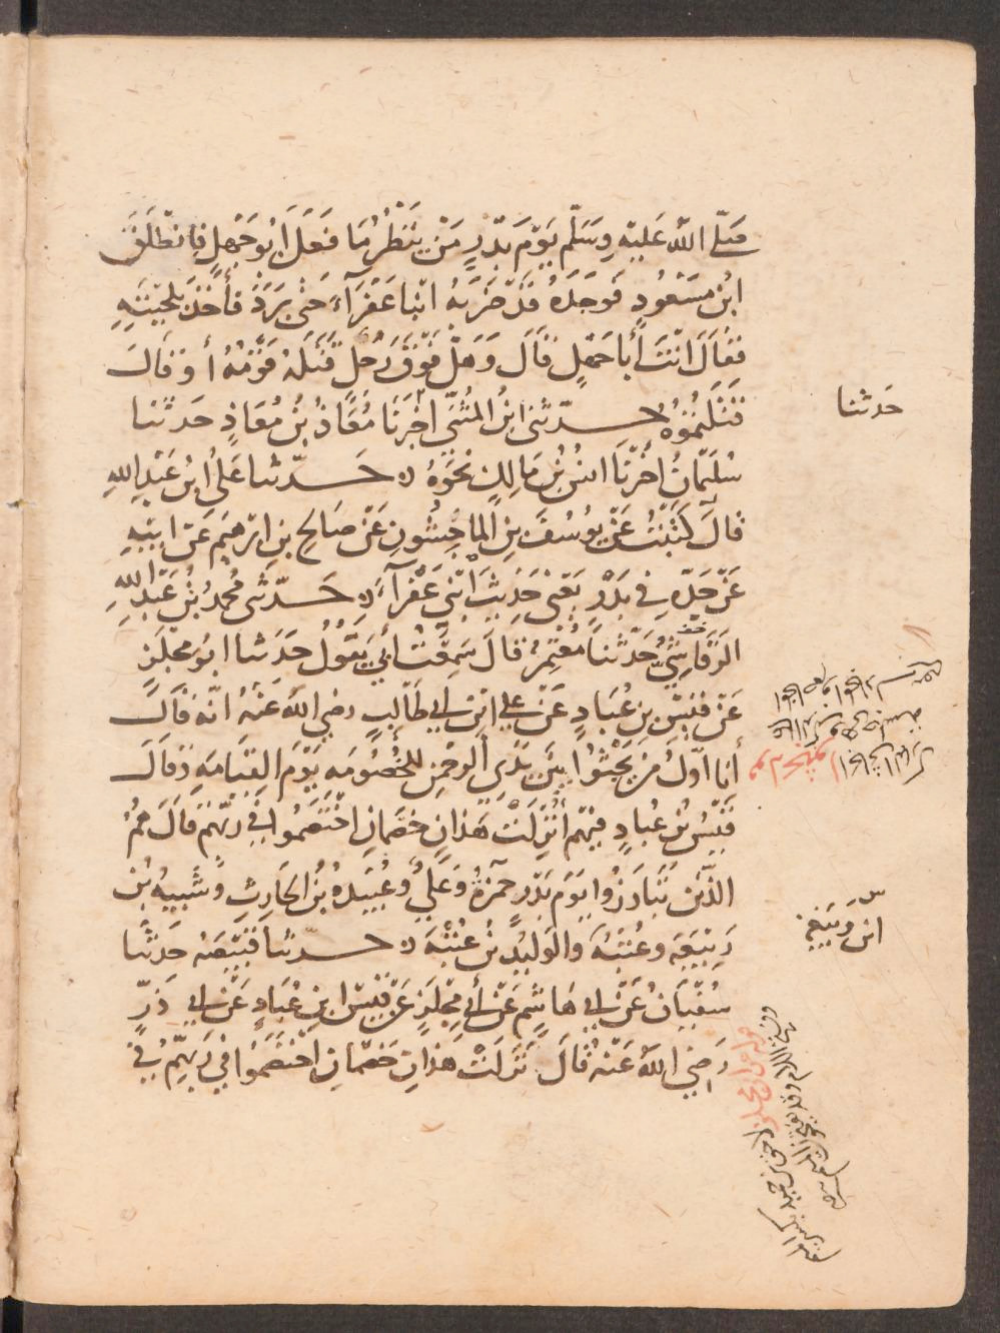 صَلَّى اللهُ عَلَيْهِ وَسَلَّم يَوْمَ بَدْرٍ مَنْ يَنْظُرُ مَا فَعَلَ ابُو جَهْلٍ فَانْطَلَقَ
ابْنُ مَسْعُودٍ فَوَجَدَهُ قَدْ ضَرَبَهُ ابْنَا عَفْرَآءَ حَتَّى بَرَدَ فَأَخَذَ بِلِحْيَتِهِ
فَقَالَ انْتَ أَبَا جَهْلٍ قَالَ وَهَلْ فَوْقَ رَجُلٍ قَتَلَهُ قَوْمُهُ أَوْ قَالَ
قَتَلْتُمُوهُ حَدَّثَنِى ابْنُ المُثَنَّى اخْبَرَنَا مُعَاذُ بْنُ مُعَاذٍ حَدَثَنَا
سُلَيْمَانُ اخْبَرَنَا انسُ بْنُ مَالِكٍ نَحْوَهُ حَدَّثَنَا عَلِىُّ ابْنُ عَبْدِ اللهِ
قَالَ كَتَبْتُ عَنْ يُوسُفَ بْنِ المَاجِشُونِ عَنْ صَالِحِ بْنِ ابْرَهِيمَ عَنْ ابِيْهِ
عَنْ جَدِّهِ فِي بَدْرٍ يَعْنِى حَدِيثَ ابْنَىْ عَفْرَآءَ حَدَّثَنِى مُحَمَّدُ بْنُ عَبْدِ اللهِ
الرَّقَاشِيُّ حَدَّثَنَا مُعْتَمِرٌ قَالَ سَمِعْتُ أَبِي يَقُولُ حَدَثَنَا ابُو مِجْلَزٍ
عَنْ قَيْسِ بْنِ عُبَادٍ عَنْ عَلِي ابْنِ ابِي طَالِبٍ رضي اللهُ عَنْهُ انَّهُ قَالَ
أَنَا اوَّلُ مَنْ يَجْثُوا بَيْنَ يَدَيِ الرَحْمٰنِ لِلْخُصُومَةِ يَوْمَ القِيَامَةِ وَقَالَ
قَيْسُ بْنُ عُبَادٍ فِيْهِمْ أُنْزِلَتْ هَذَانِ خَصْمَانِ اخْتَصَمُوا فِي رَبِّهِمْ قَالَ هُمُ
الذِّيْنَ تَبَارَزُوا يَوْمَ بَدْرٍ حَمْزَةُ وَعَلِيٌّ وَعُبَيْدَةُ بْنُ الحَارِثِ وَشَيْبَةُ بْنُ
رَبِيْعَةَ وَعُتْبَةُ وَالوَلِيْدُ بْنُ عُتْبَةَ حَدَّثَنَا قَبِيْصَة حَدَثَنَا
سُفْيَانُ عَنْ ابِي هَاشِمٍ عَنْ أَبِي مِجْلَزٍ عَنْ قَيْسِ ابْنِ عُبَادٍ عَنْ ابِي ذَرٍّ
رَضِيَ اللهُ عَنْهُ قَالَ نَزَلَتْ هَذَانِ خَصْمَانِ اخْتَصَمُوا فِي رَبِّهِمْ فِي
حَدثنا
ابن رَبيعة